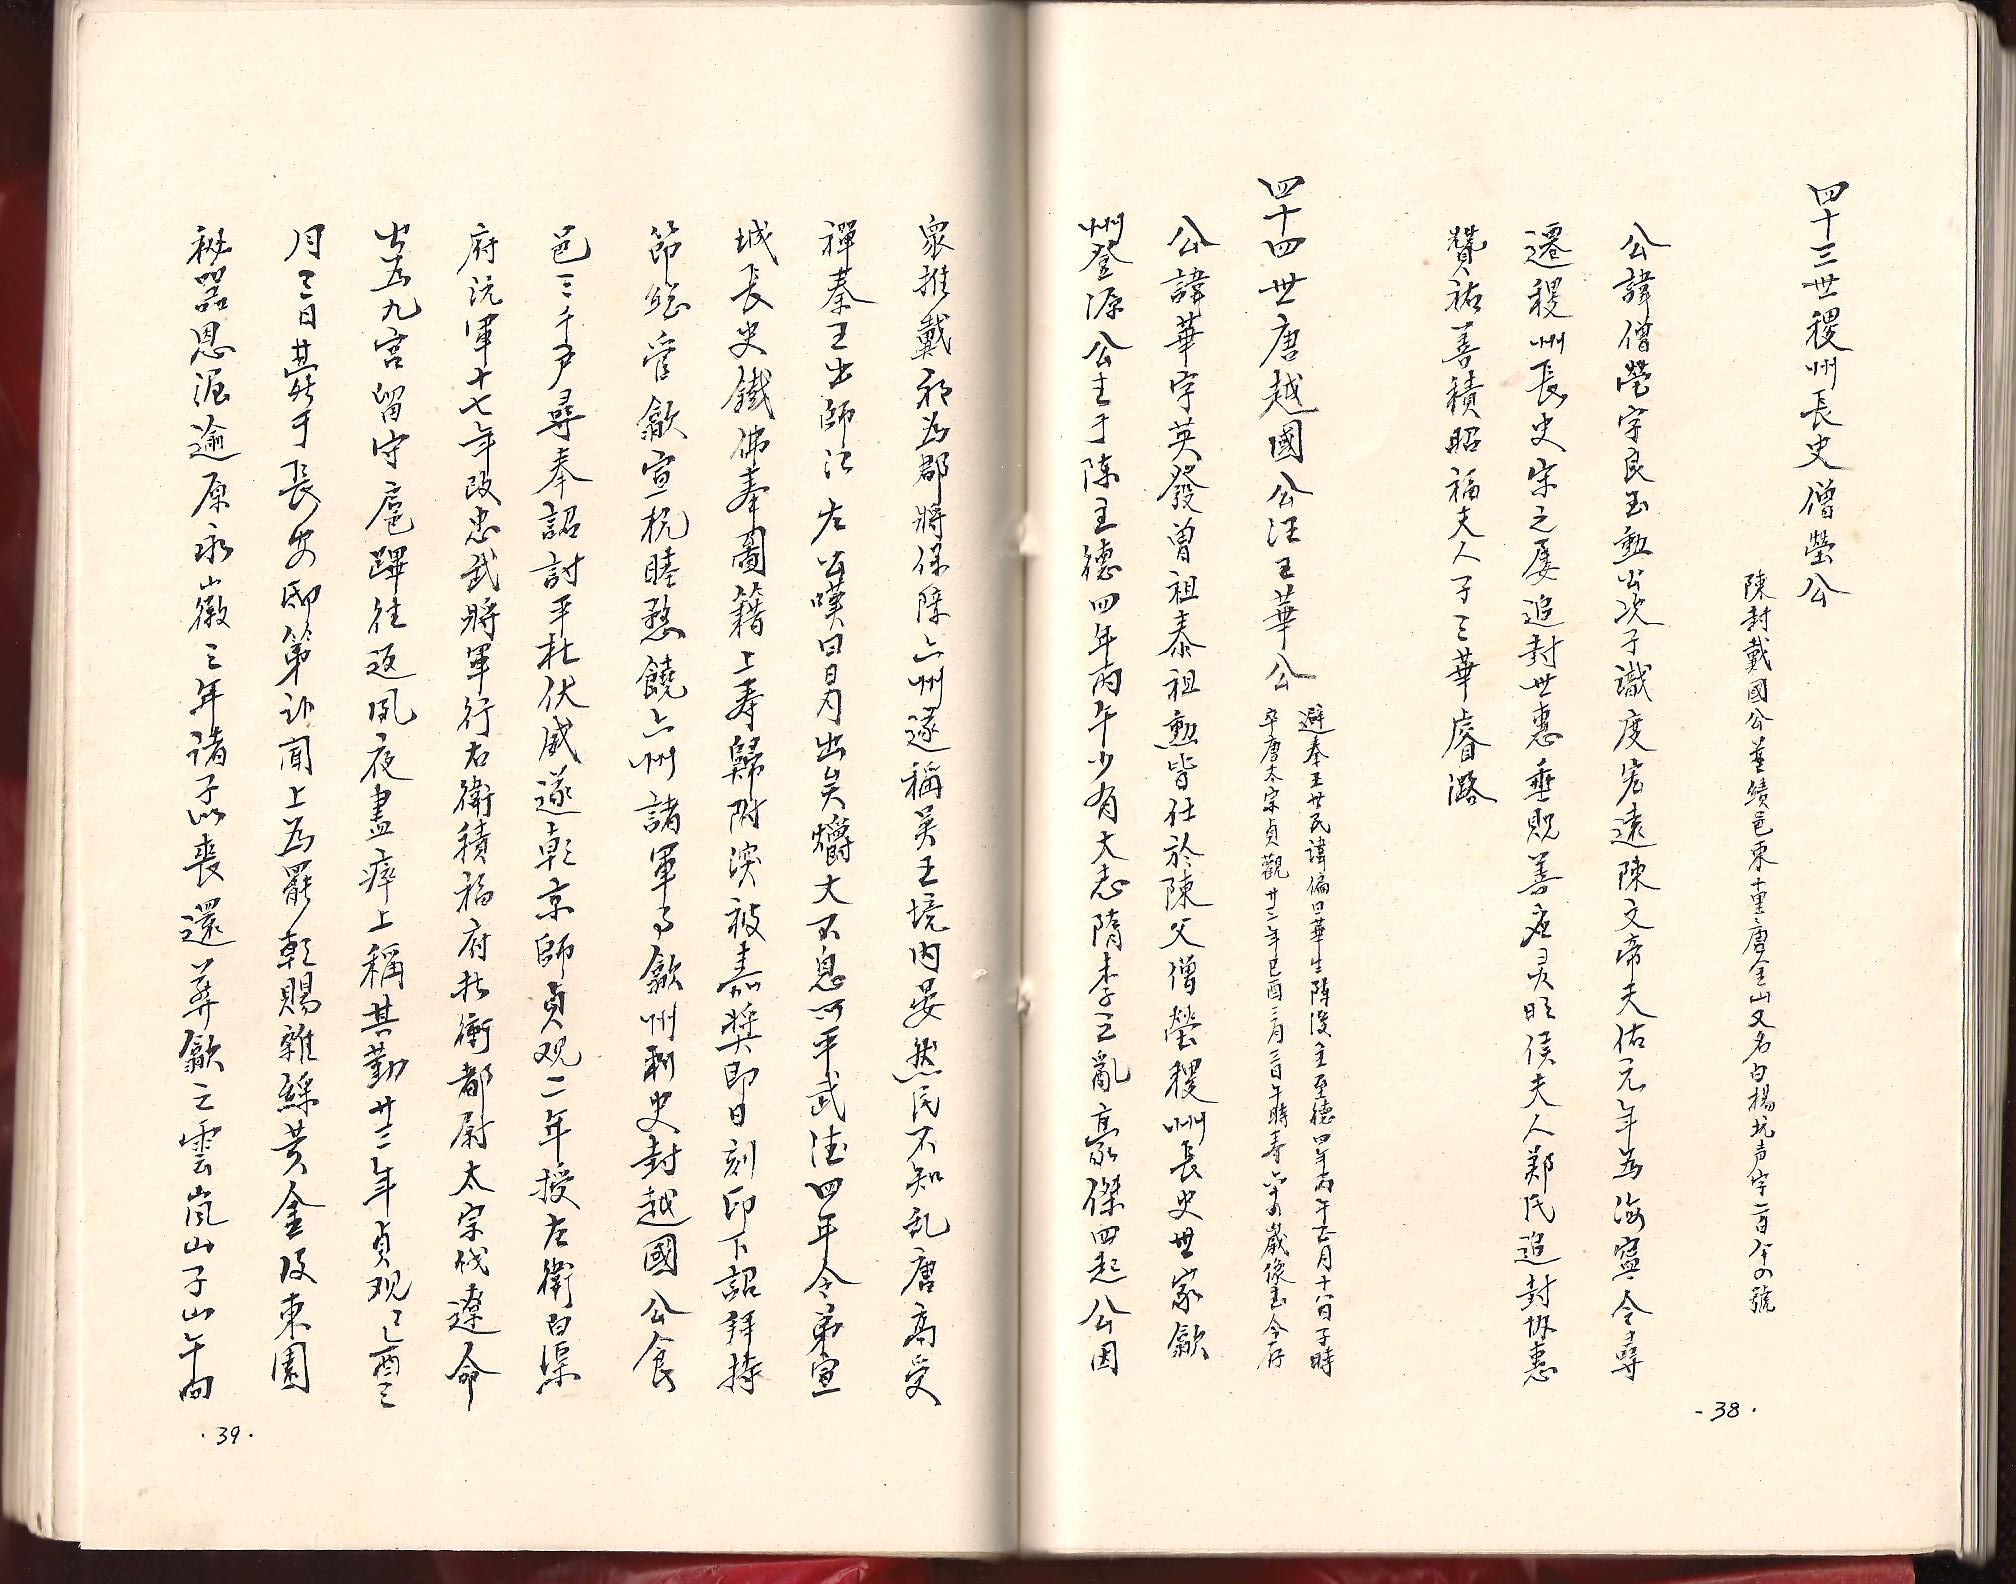 四十三世稷州長史僧瑩公
陳封戴國公葬績邑東十里唐金山又名白楊坑声字一百八十四號
公諱僧瑩字良玉勲公次子識度宏遠陳文帝天佑元年為海寧令尋
遷稷州長史宋之屢追封世惠垂貺善应灵昭侯夫人鄭氏追封协惠
贊祐善積昭福夫人子三華睿潞
四十四世唐越國公汪王華公
避秦王世民諱偏曰華生陳後主至德四年丙午正月十八日子時
卒唐太宗貞觀廿三年己酉三月三日午時寿六十四歲像圭今存
公諱華字英發曾祖泰祖勲皆仕於陳父僧瑩稷州長史世家歙
州登源公生于陈至德四年丙午少有大志隋季亡亂豪傑四起公因
眾推戴初為郡將保障六州遂稱吴王境内晏然民不知乱唐高受
禪秦王出師江左公嘆曰日月出矣爝火不息可乎武德四年令弟宣
城長史鐵佛奉圖籍上寿歸附深被嘉奬即日刻印下詔拜持
節總管歙宣杭睦婺饒六州諸軍事歙州刺史封越國公食
邑三千户尋奉詔討平杜伏威遂朝京師貞观二年授左衛白渠
府沅軍十七年改忠武將軍行右衛積福府折衝都尉太宗伐遼命
出为九宫留守扈蹕往返夙夜盡瘁上稱其勤廿三年貞观己酉三
月三日薨于長安邸第讣聞上為罷朝賜雜綵黄金及東園
秘器恩渥逾原永徽三年諸子以丧還葬歙之雲嵐山子山午向
-38·
·39·